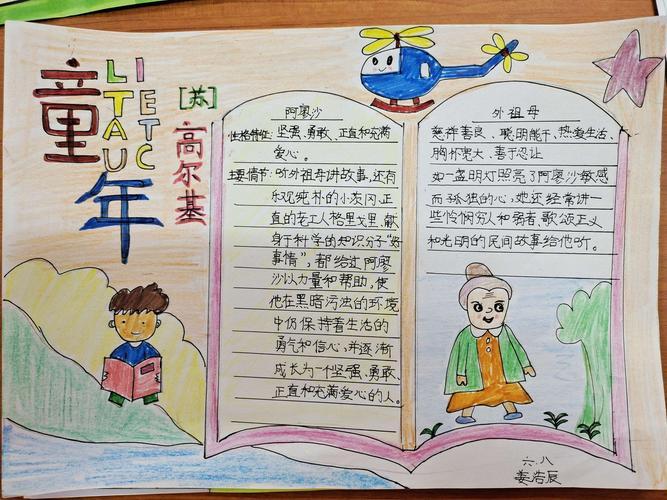 童年
LI
TE
AT
UC
[苏]
高尔基
阿廖沙
性格特征：坚强、勇敢、正直和充满
爱心。
主要情节：听外祖母讲故事，还有
乐观纯朴的小茨冈，正
直的老工人格里戈里，献
身于科学的知识分子“好
事情”，都给过阿廖
沙以力量和帮助，使
他在黑暗污浊的环境
中仍保持着生活的
勇气和信心，并逐渐
成长为一个坚强、勇敢、
正直和充满爱心的人。
外祖母
慈祥善良、聪明能干、热爱生活、
胸怀宽大、善于忍让
如一盏明灯照亮了阿廖沙敏感
而孤独的心，她还经常讲一
些怜悯穷人和弱者、歌颂正义
和光明的民间故事给他听。
六.八
姜浩辰